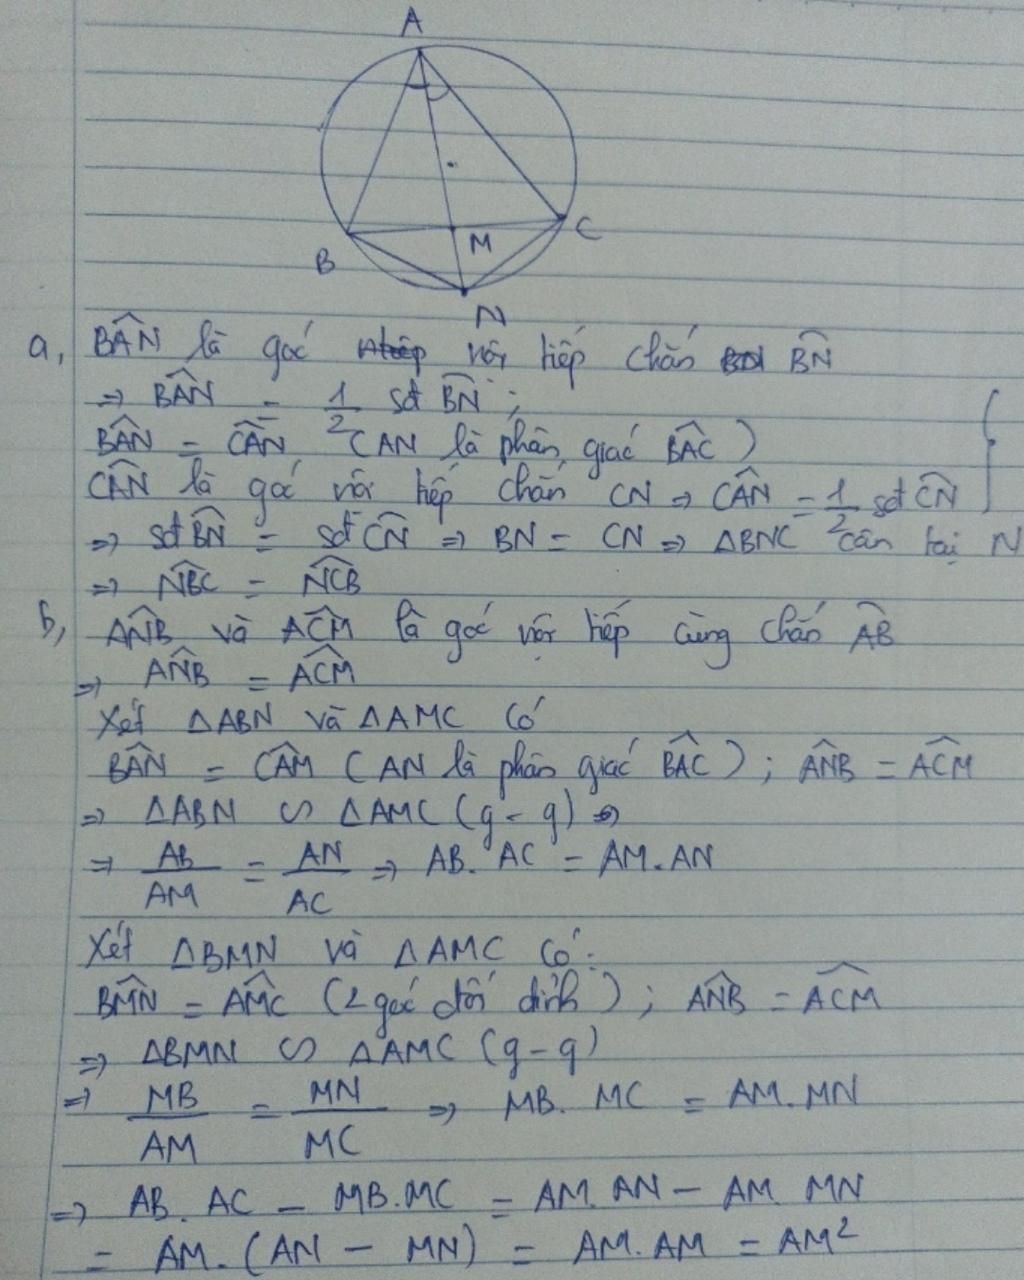 A
B
M
C
N
a, BÂN là góc nội tiếp chắn BN
=> BÂN = 1/2 sđ BN ;
BÂN = CÂN (AN là phân giác BÂC)
CÂN là góc nội tiếp chắn CN => CÂN = 1/2 sđ CN
=> sđ BN = sđ CN => BN = CN => ΔBNC cân tại N
=> NBC = NCB
b, ANB và ACM là góc nội tiếp cùng chắn AB
=> ANB = ACM
Xét ΔABN và ΔAMC có
BÂN = CÂM (AN là phân giác BÂC) ; ANB = ACM
=> ΔABN ∽ ΔAMC (g-g) =>
=> AB/AM = AN/AC => AB. AC = AM.AN
Xét ΔBMN và ΔAMC có:
BMN = AMC (2 góc đối đỉnh) ; ANB = ACM
=> ΔBMN ∽ ΔAMC (g-g)
=> MB/AM = MN/MC => MB. MC = AM.MN
=> AB. AC - MB.MC = AM. AN - AM. MN
= AM. (AN - MN) = AM. AM = AM²